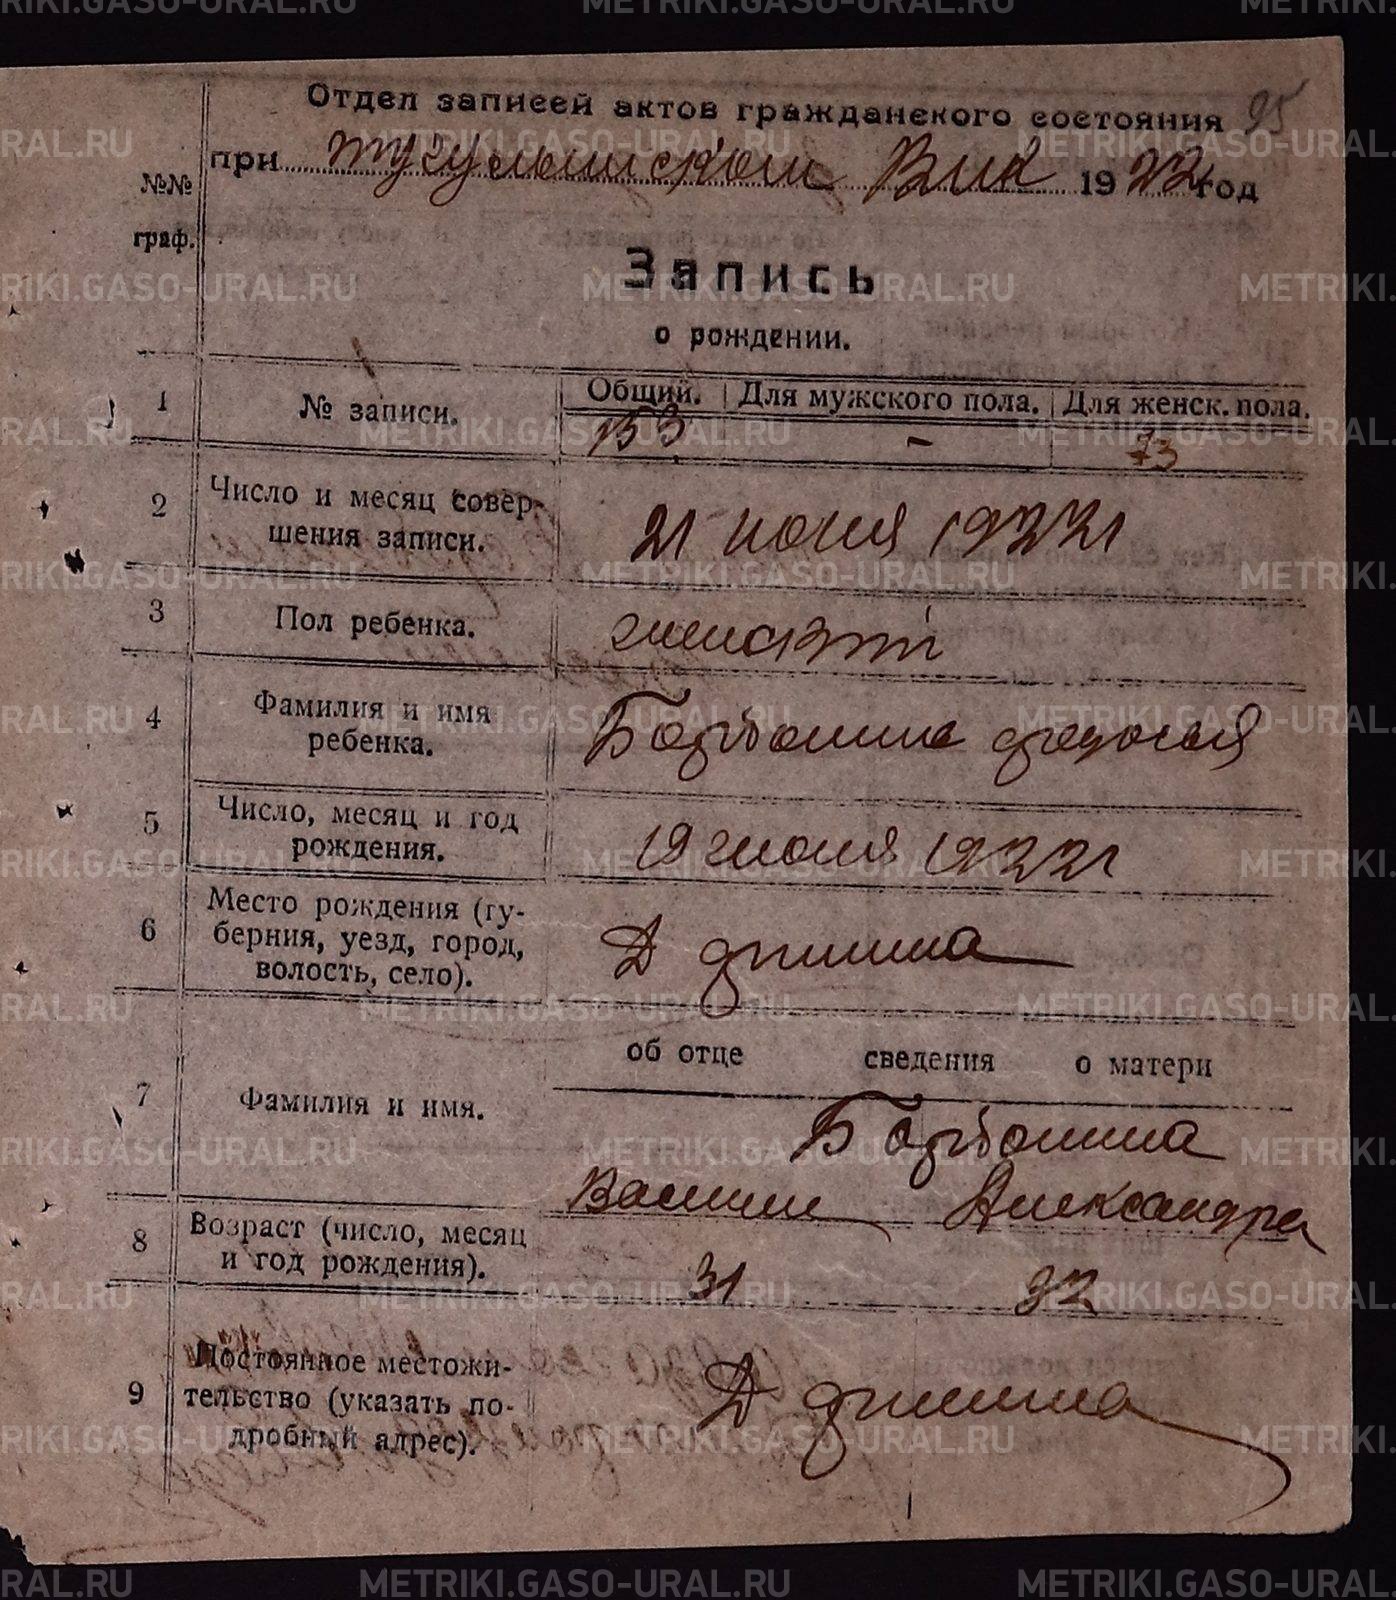 Отдел записей актов гражданского состояния 95
при Тугулымском Вик 1922 год
№№ граф.
Запись
о рождении.
1 № записи. Общий. Для мужского пола. Для женск. пола.
153 - 73
2 Число и месяц совер-
шения записи. 21 июня 1922 г
3 Пол ребенка. женский
4 Фамилия и имя
ребенка.
5 Число, месяц и год
рождения. 19 июня 1922 г
6 Место рождения (гу-
берния, уезд, город,
волость, село). Д
об отце сведения о матери
7 Фамилия и имя.
Александра
8 Возраст (число, месяц
и год рождения). 31 32
9 Постоянное местожи-
тельство (указать по-
дробный адрес). Д
METRIKI.GASO-URAL.RU